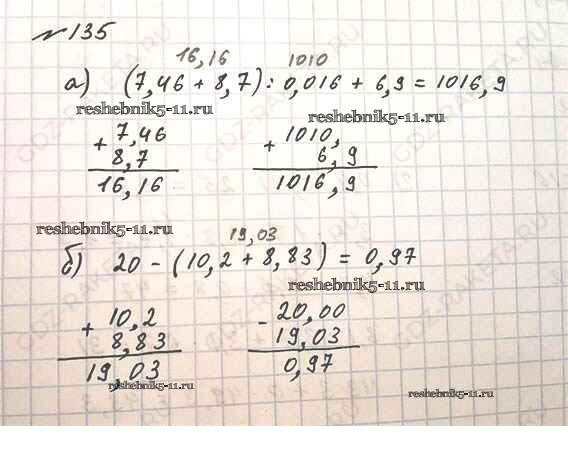 № 135
16,16 1010
а) (7,46 + 8,7) : 0,016 + 6,9 = 1016,9
reshebnik5-11.ru reshebnik5-11.ru
+ 7,46
8,7
16,16
+ 1010,
6,9
1016,9
reshebnik5-11.ru
19,03
б) 20 - (10,2 + 8,83) = 0,97
reshebnik5-11.ru
+ 10,2
8,83
19,03
- 20,00
19,03
0,97
reshebnik5-11.ru
reshebnik5-11.ru